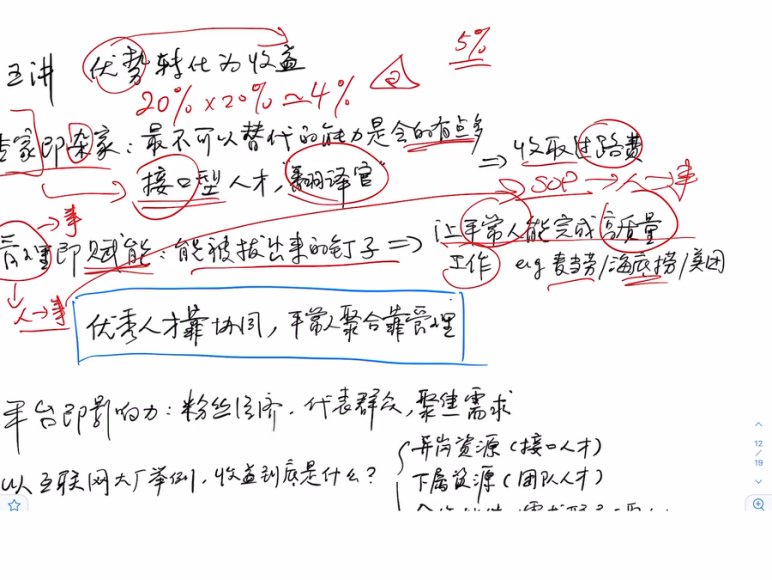 5%
五讲 优势转化为收益
20% × 20% ≃ 4% ②
专家即杂家：最不可以替代的能力是会的有点多 ⇒ 收取过路费
接口型人才，"翻译官"
SOP → 人 → 事
→ 事
管理即赋能：能被拔出来的钉子 ⇒ 让平常人能完成高质量
工作 eg 麦当劳/海底捞/美团
人→事
优秀人才靠协同，平常人聚合靠管理
平台即影响力：粉丝经济，代表群众，聚焦需求
以互联网大厂举例，收益到底是什么？
异岗资源（接口人才）
下属资源（团队人才）
12
/
19